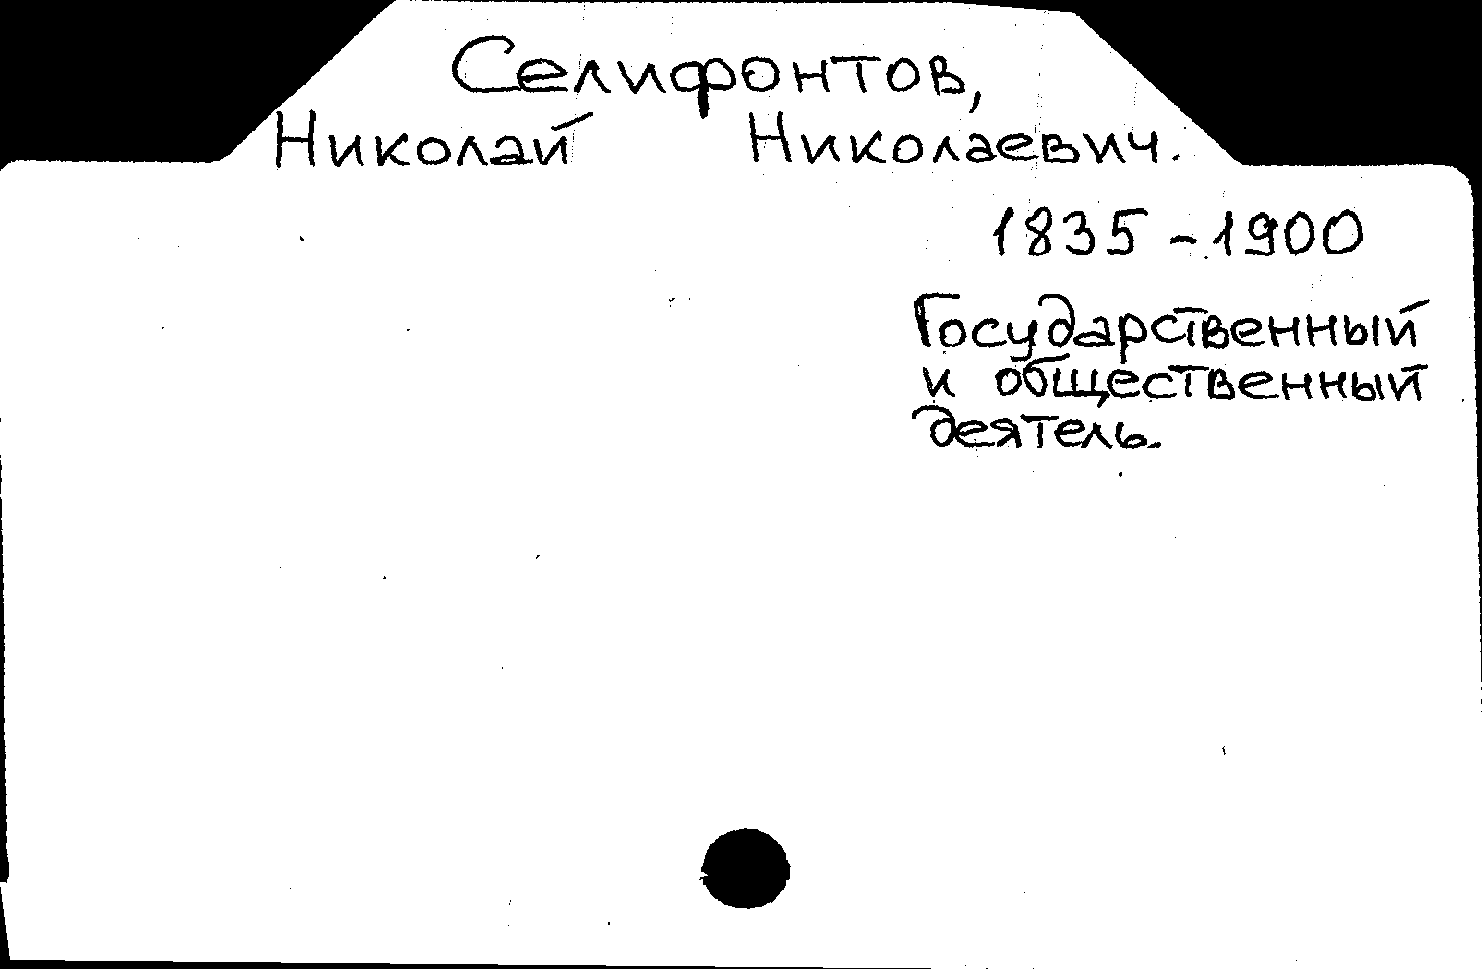 Селифонтов,
Николай Николаевич.
1835-1900
Государственный
и общественный
деятель.